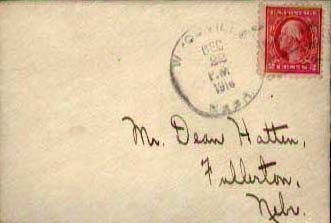 DEC
28
P.M.
1916
U.S. POSTAGE
2 CENTS 2
Mr. Dean Hatten,
Fullerton,
Nebr.